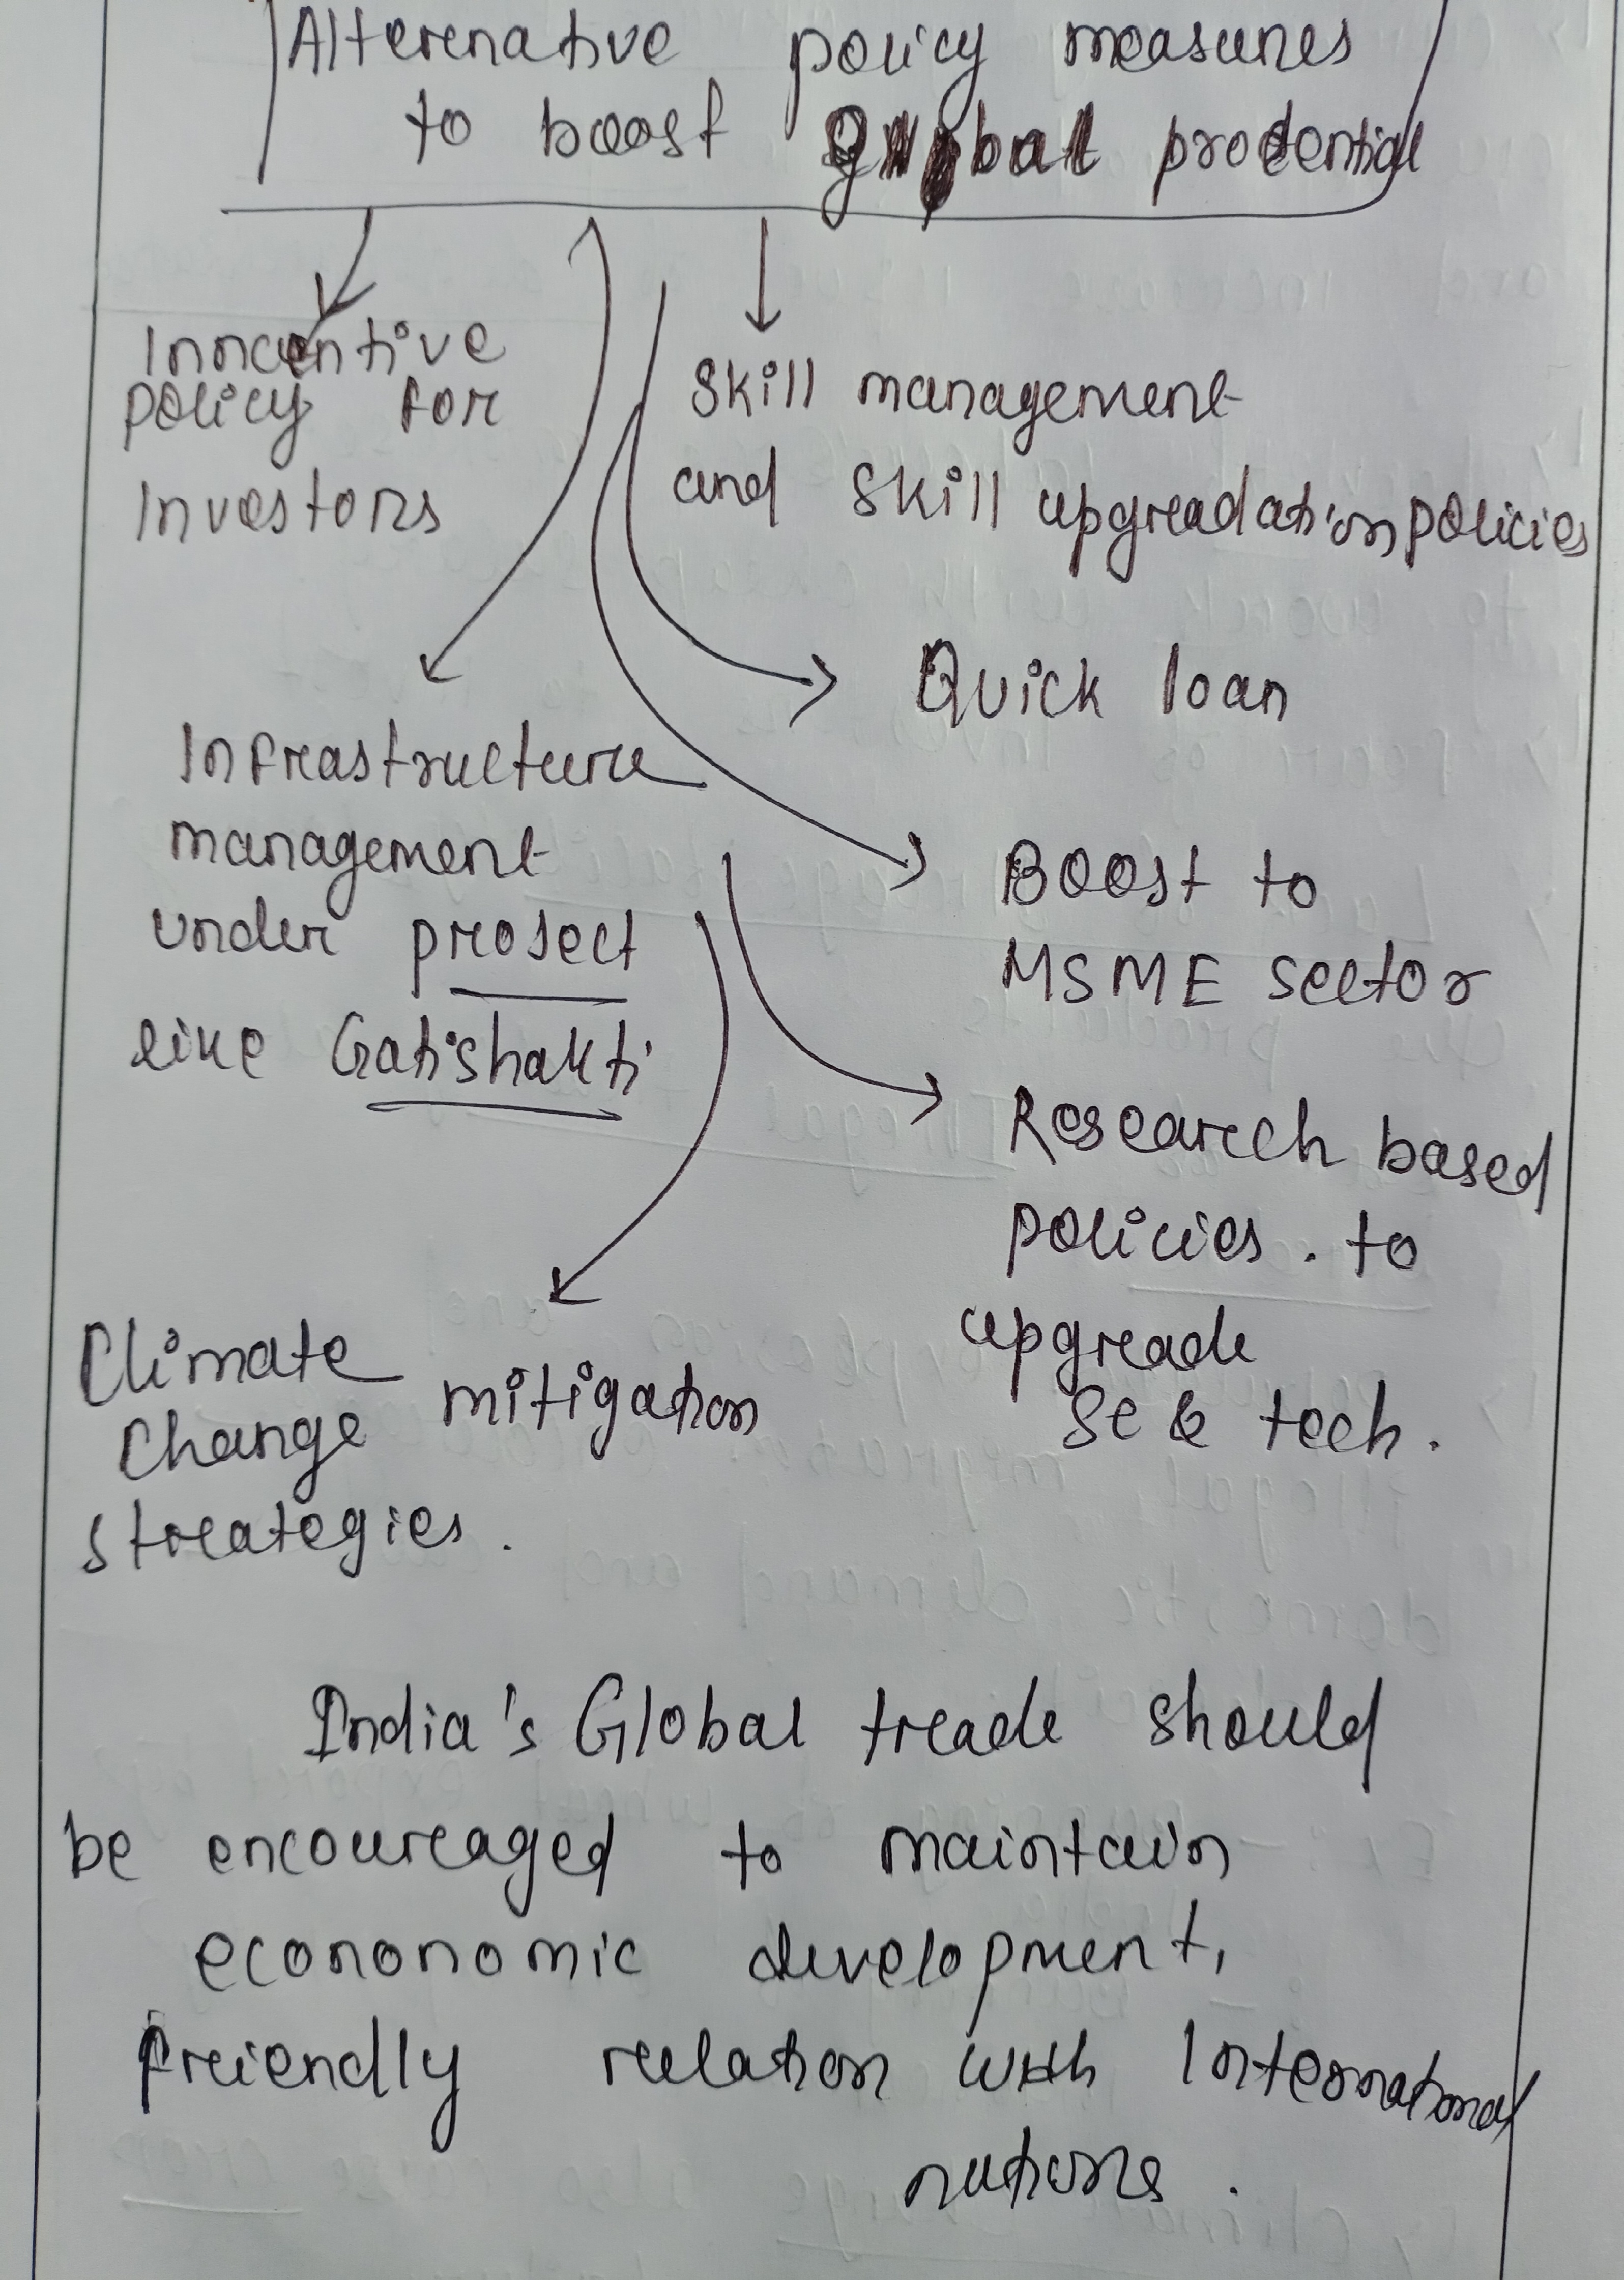 Alterenative policy measures
to boost global prodential
Inncentive
policy for
Investors
Skill management
and skill upgreadation policies
Quick loan
Infrastructure
management
under project
like Gatishakti
Boost to
MSME sector
Research based
policies. to
upgreade
Sc & tech.
Climate
change mitigation
streategies.
India's Global treade should
be encoureaged to maintain
econonomic development,
freiendly relation with International
nations.